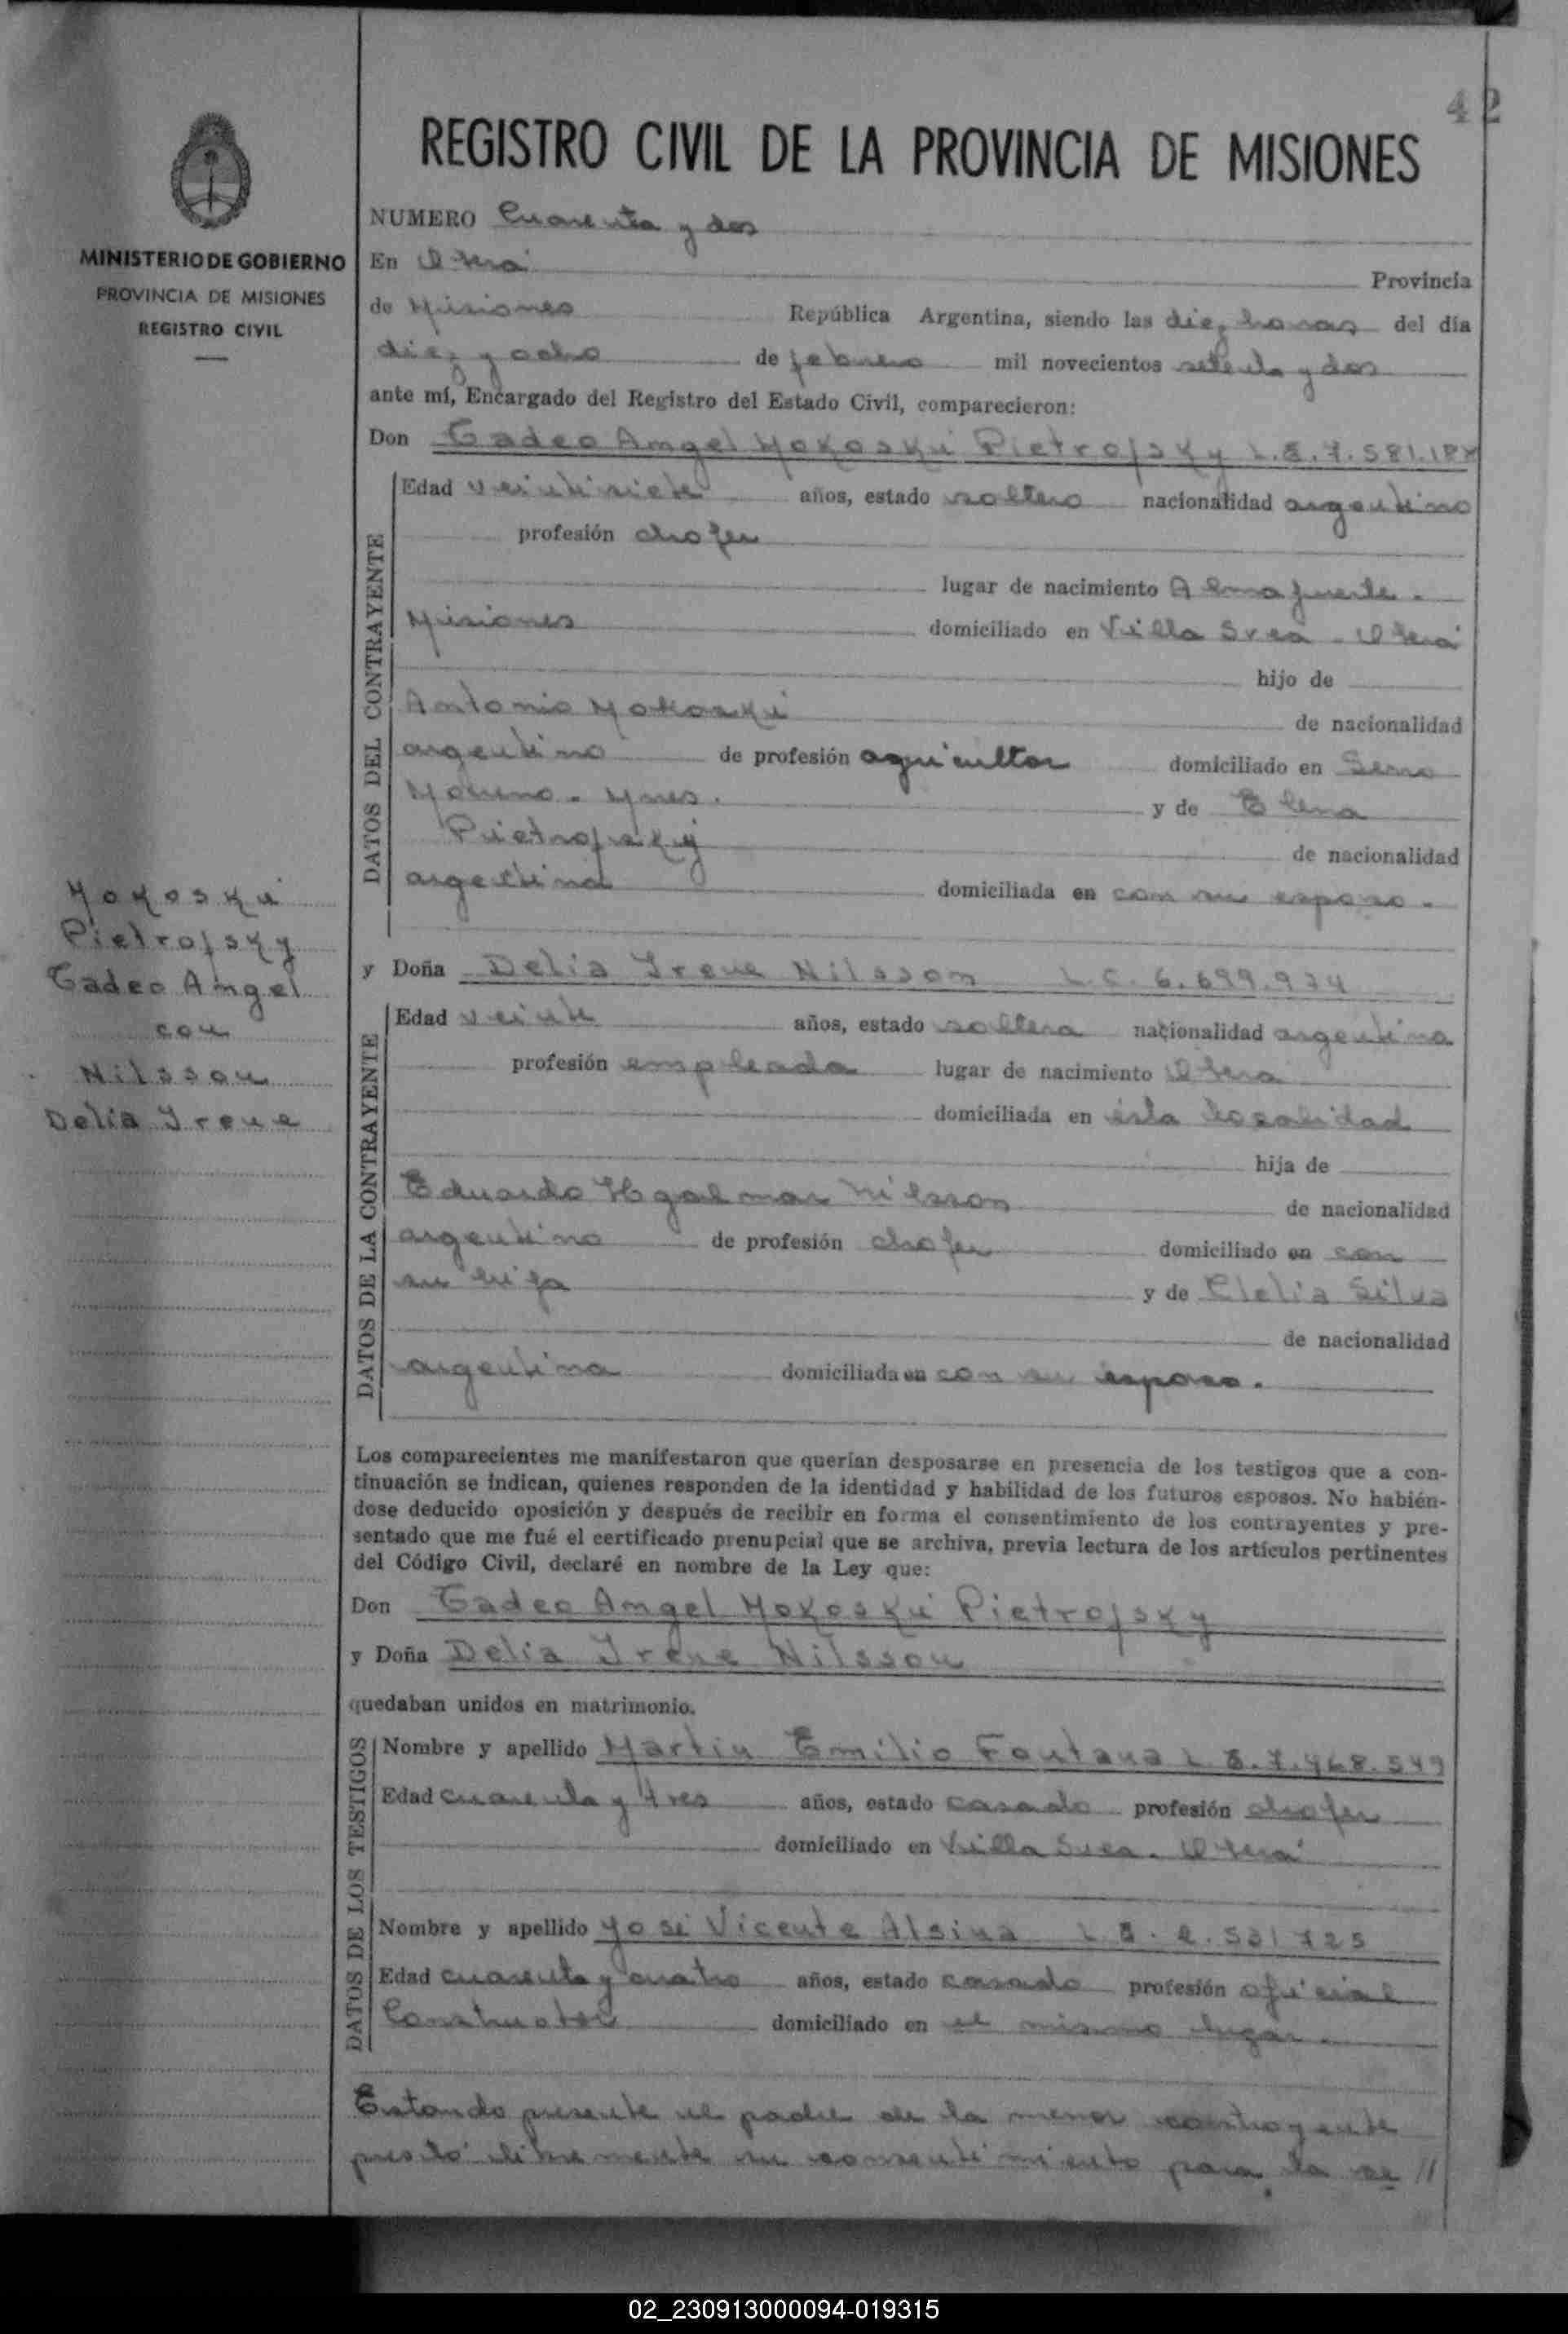 42
REGISTRO CIVIL DE LA PROVINCIA DE MISIONES
MINISTERIO DE GOBIERNO
PROVINCIA DE MISIONES
REGISTRO CIVIL
NUMERO Cuarenta y dos
En Oberá Provincia
de Misiones República Argentina, siendo las diez horas del día
diez y ocho de febrero mil novecientos setenta y dos
ante mí, Encargado del Registro del Estado Civil, comparecieron:
Don Tadeo Angel Mokoski Pietrofsky L.E. 7.581.188
DATOS DEL CONTRAYENTE
Edad veintisiete años, estado soltero nacionalidad argentino
profesión chofer
lugar de nacimiento Almafuerte.
Misiones domiciliado en Villa Svea - Oberá
hijo de
Antonio Mokoski de nacionalidad
argentino de profesión agricultor domiciliado en Serro
Moreno - Mnes. y de Elena
Pietrofsky de nacionalidad
argentina domiciliada en con su esposo.
Mokoski
Pietrofsky
Tadeo Angel
con
Nilsson
Delia Irene
y Doña Delia Irene Nilsson L.C. 6.699.974
DATOS DE LA CONTRAYENTE
Edad veinte años, estado soltera nacionalidad argentina
profesión empleada lugar de nacimiento Oberá
domiciliada en ésta localidad
hija de
Eduardo Hgalmar Nilsson de nacionalidad
argentino de profesión chofer domiciliado en con
su hija y de Clelia Silva
de nacionalidad
argentina domiciliada en con su esposo.
Los comparecientes me manifestaron que querían desposarse en presencia de los testigos que a con-
tinuación se indican, quienes responden de la identidad y habilidad de los futuros esposos. No habién-
dose deducido oposición y después de recibir en forma el consentimiento de los contrayentes y pre-
sentado que me fué el certificado prenupcial que se archiva, previa lectura de los artículos pertinentes
del Código Civil, declaré en nombre de la Ley que:
Don Tadeo Angel Mokoski Pietrofsky
y Doña Delia Irene Nilsson
quedaban unidos en matrimonio.
DATOS DE LOS TESTIGOS
Nombre y apellido Martin Emilio Fontana L.E. 7.468.549
Edad cuarenta y tres años, estado casado profesión chofer
domiciliado en Villa Svea - Oberá
Nombre y apellido José Vicente Alsina L.E.
Edad cuarenta y cuatro años, estado casado profesión oficial
Constructor domiciliado en el mismo lugar.
Estando presente el padre de la menor contrayente
prestó libremente su consentimiento para la ce //
02_230913000094-019315